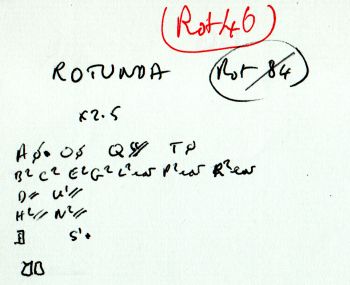 Rot 46
ROTUNDA Rot 84
x2.5
A∅. O∅ Q∅ T∅
B² C² E² G² L²ear P²ear R²ear
D= U¹//
H²// N²//
S¹.